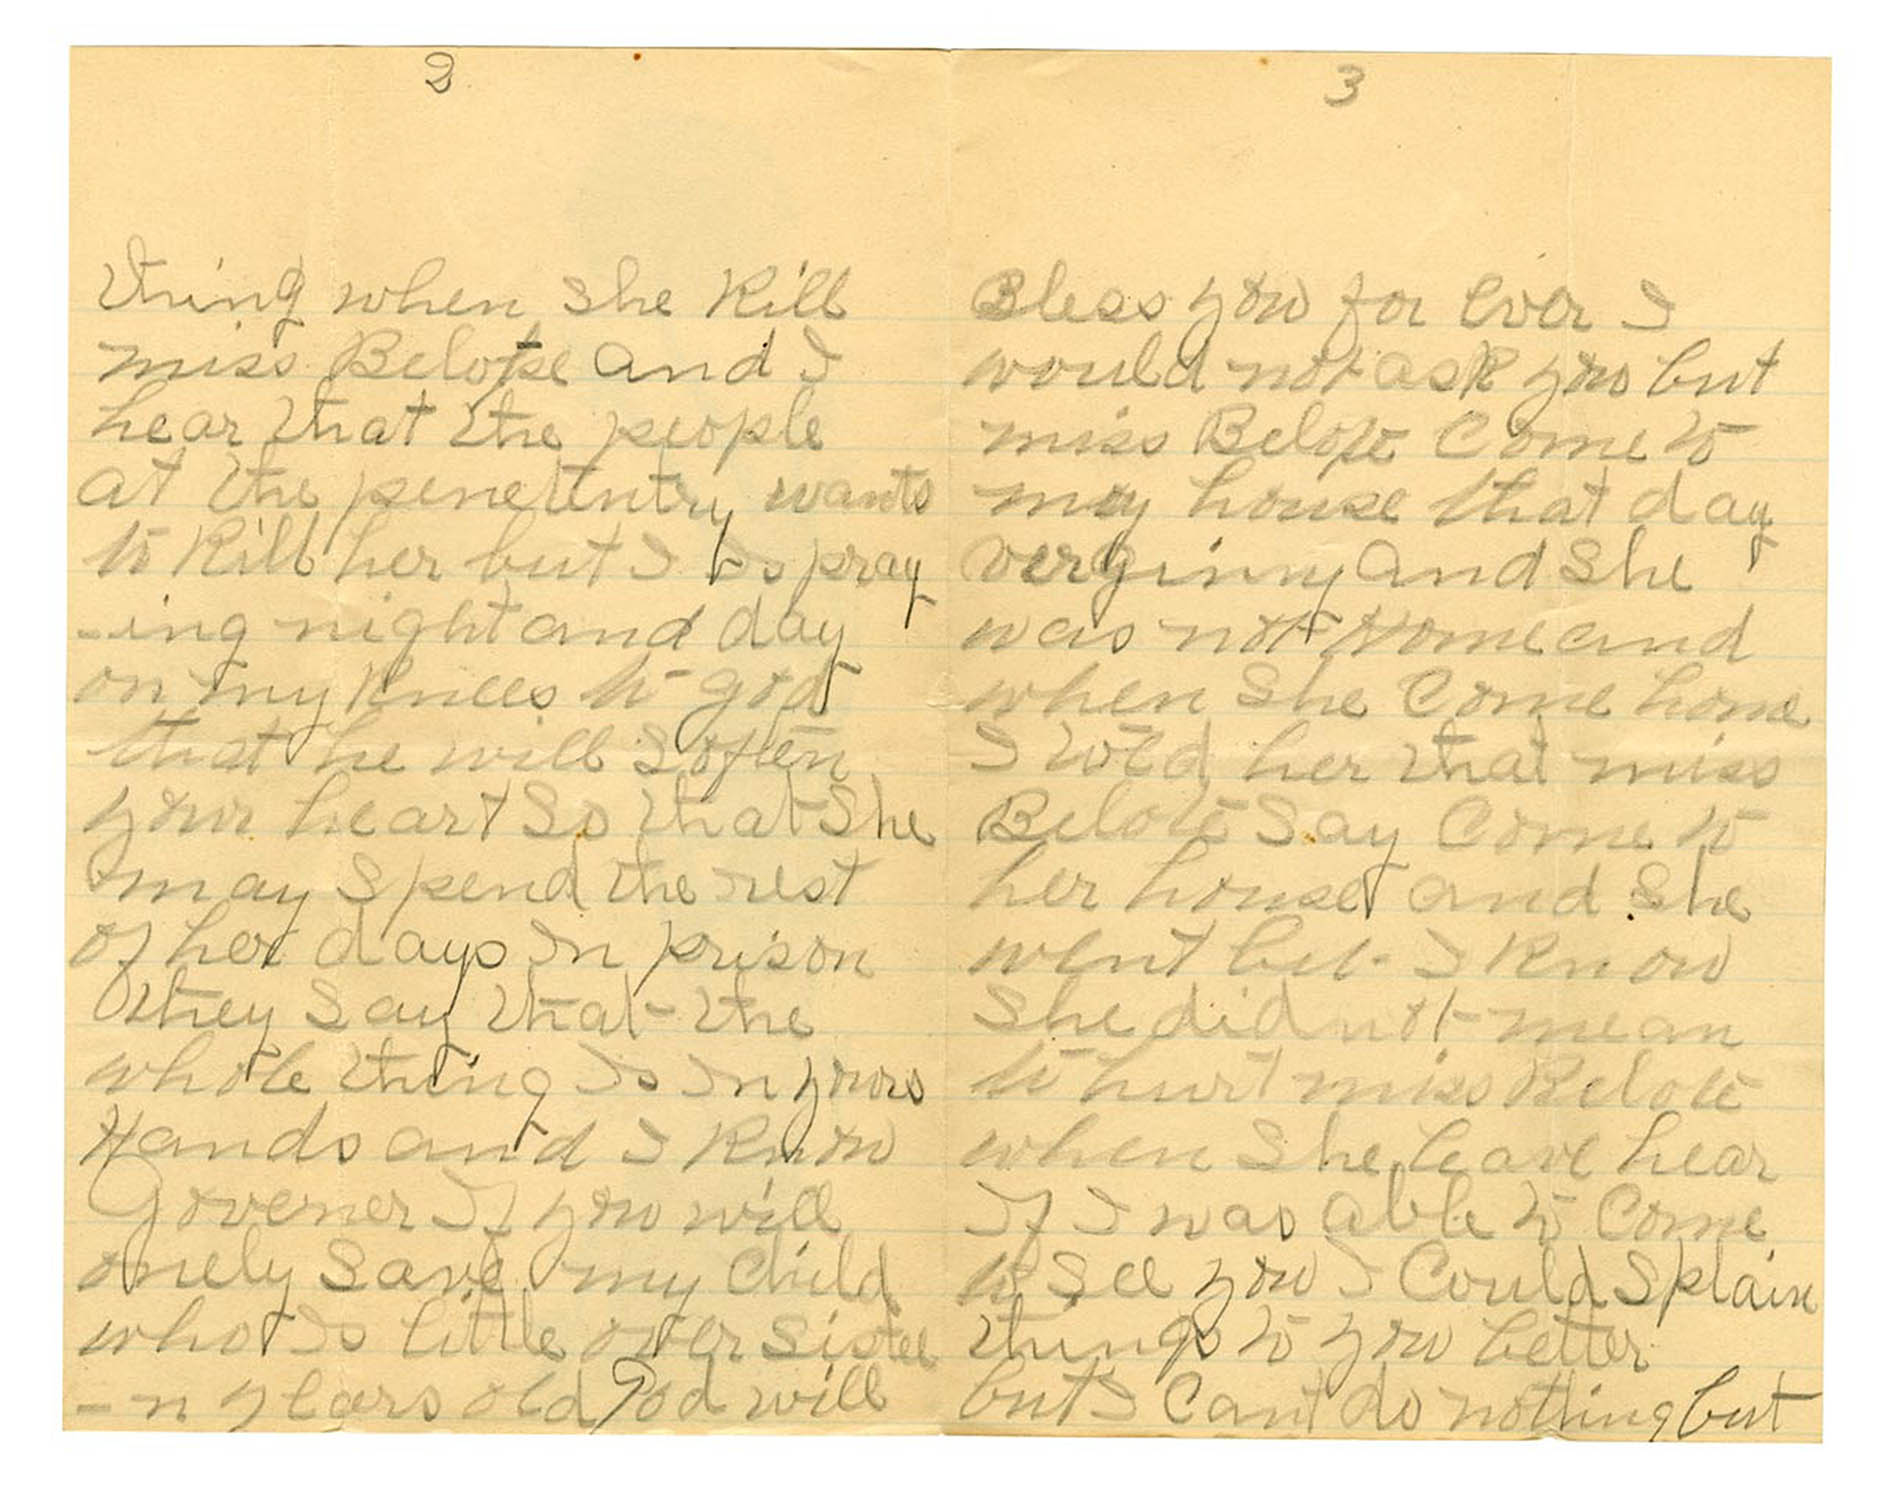 2
thing when she Kill
miss Belote and I
hear that the people
at the penetintry wants
to Kill her but I Is pray
-ing night and day
on my Knees to god
that he will soften
your heart So that She
may Spend the rest
of her days In prison
they Say that the
whole thing Is In yours
Hands and I Know
Governer If you will
onely Save my child
who Is little over sistee
-n years old God will
3
Bless you for Ever I
would not ask you but
miss Belote Come to
my house that day
verginny and She
was not Home and
when She Come home
I told her that miss
Belote Say Come to
her house and she
went but I Know
She did not mean
to hurt miss Belote
when She leave hear
If I was able to Come
to See you I Could Splain
things to you better
but I Cant do nothing but